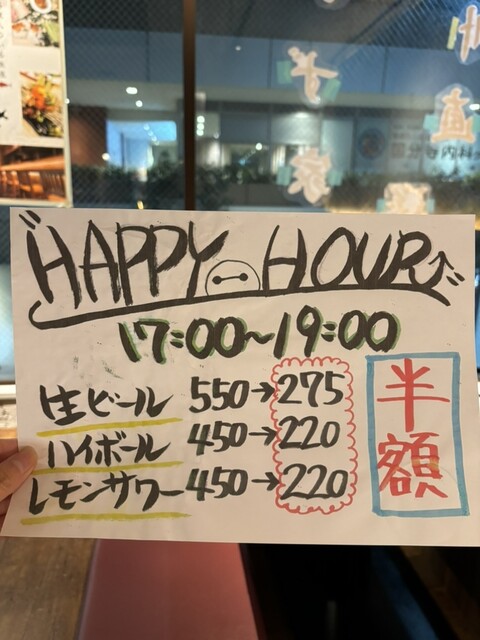 HAPPY HOUR
17:00~19:00
生ビール 550→275
ハイボール 450→220
レモンサワー 450→220
半額